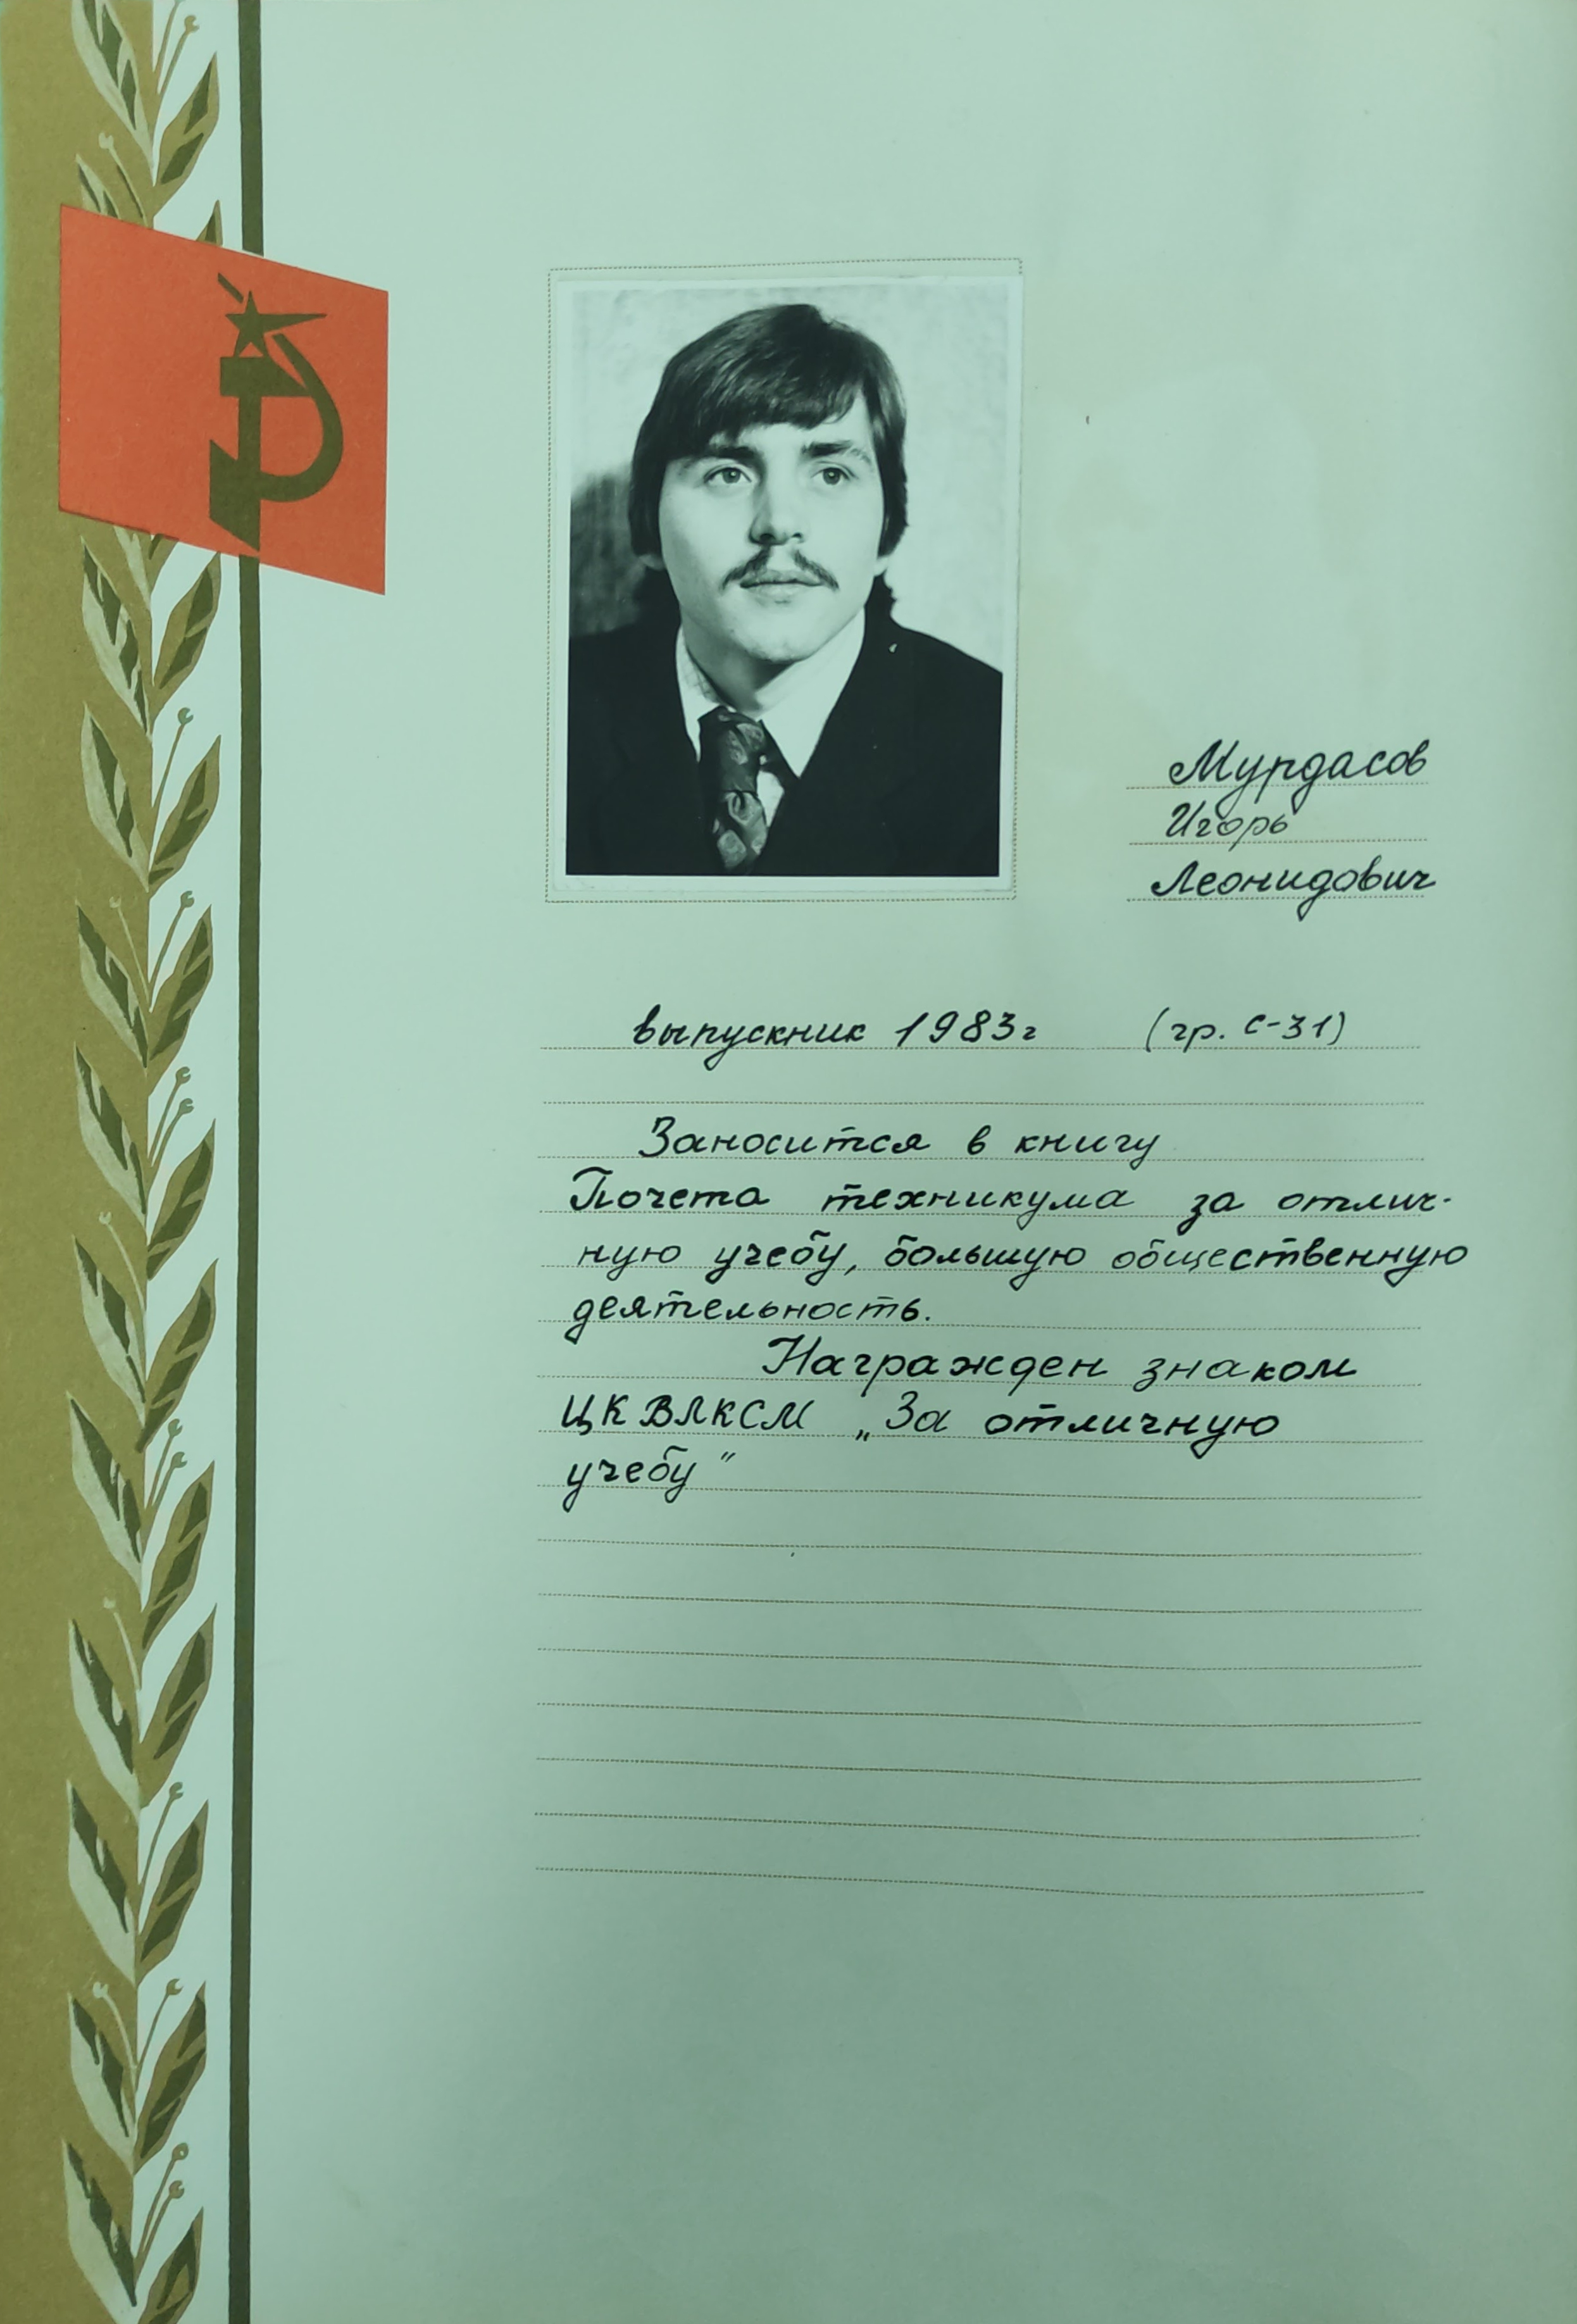 Мурдасов
Игорь
Леонидович
выпускник 1983г (гр. С-31)
Заносится в книгу
Почета техникума за отлич-
ную учебу, большую общественную
деятельность.
Награжден знаком
ЦК ВЛКСМ „За отличную
учебу"